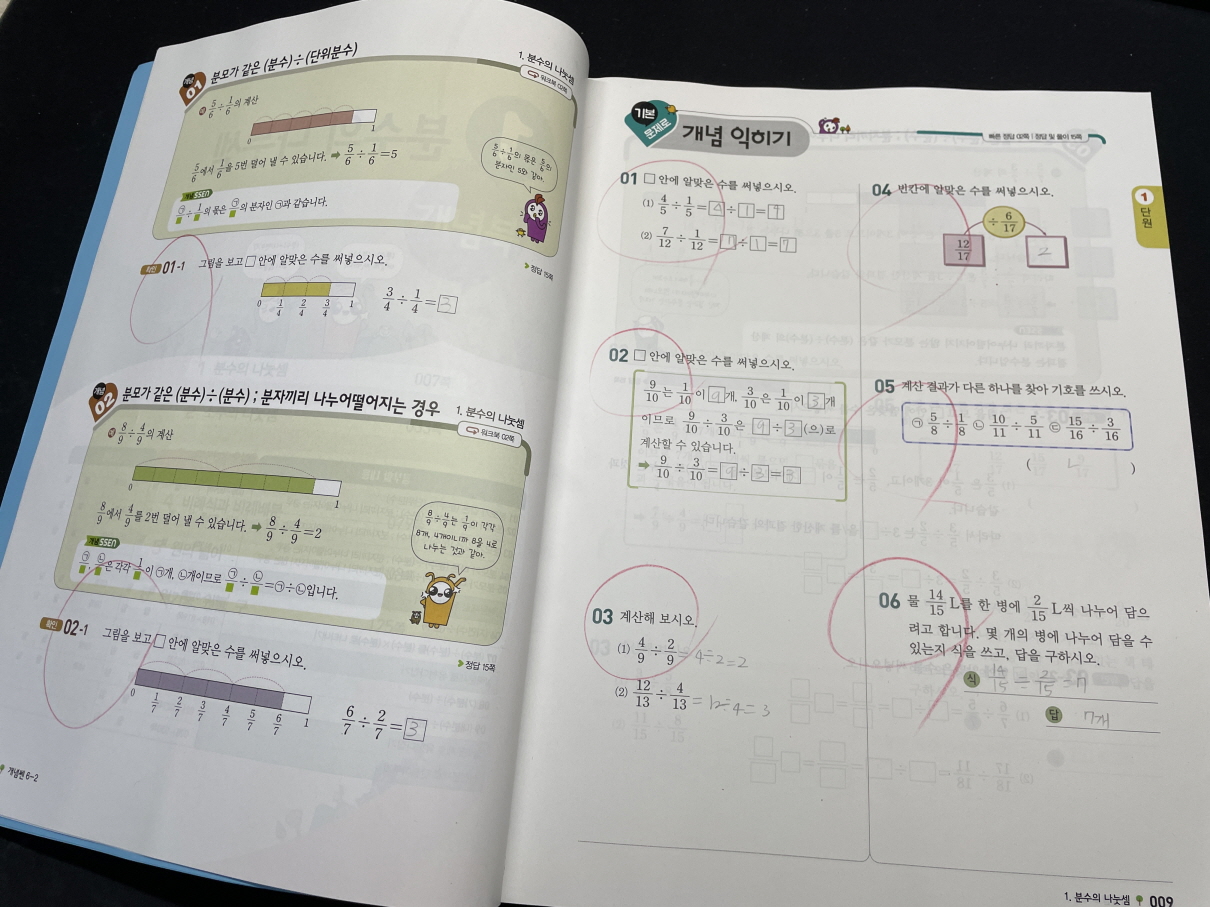 개념 01 분모가 같은 (분수)÷(단위분수)
1. 분수의 나눗셈
워크북 02쪽
예 5/6÷1/6의 계산
0 1
5/6에서 1/6을 5번 덜어 낼 수 있습니다. ➡ 5/6÷1/6=5
5/6÷1/6의 몫은 5/6의
분자인 5와 같아.
개념SSEN
㉠/■÷1/■의 몫은 ㉠/■의 분자인 ㉠과 같습니다.
정답 15쪽
확인 01-1 그림을 보고 □ 안에 알맞은 수를 써넣으시오.
0 1/4 2/4 3/4 1
3/4÷1/4=3
개념 02 분모가 같은 (분수)÷(분수) ; 분자끼리 나누어떨어지는 경우
1. 분수의 나눗셈
워크북 02쪽
예 8/9÷4/9의 계산
0 1
8/9에서 4/9를 2번 덜어 낼 수 있습니다. ➡ 8/9÷4/9=2
8/9÷4/9는 1/9이 각각
8개, 4개이니까 8을 4로
나누는 것과 같아.
개념SSEN
㉠/■÷㉡/■은 각각 1/■이 ㉠개, ㉡개이므로 ㉠/■÷㉡/■=㉠÷㉡입니다.
정답 15쪽
확인 02-1 그림을 보고 □ 안에 알맞은 수를 써넣으시오.
0 1/7 2/7 3/7 4/7 5/7 6/7 1
6/7÷2/7=3
개념쎈 6-2
기본 문제로 개념 익히기
빠른 정답 02쪽 | 정답 및 풀이 15쪽
1 단원
01 □ 안에 알맞은 수를 써넣으시오.
(1) 4/5÷1/5=4÷1=4
(2) 7/12÷1/12=7÷1=7
02 □ 안에 알맞은 수를 써넣으시오.
9/10는 1/10이 9개, 3/10은 1/10이 3개
이므로 9/10÷3/10은 9÷3(으)로
계산할 수 있습니다.
➡ 9/10÷3/10=9÷3=3
03 계산해 보시오.
(1) 4/9÷2/9=4÷2=2
(2) 12/13÷4/13=12÷4=3
04 빈칸에 알맞은 수를 써넣으시오.
÷6/17
12/17 2
05 계산 결과가 다른 하나를 찾아 기호를 쓰시오.
㉠ 5/8÷1/8 ㉡ 10/11÷5/11 ㉢ 15/16÷3/16
( ㄴ )
06 물 14/15 L를 한 병에 2/15 L씩 나누어 담으
려고 합니다. 몇 개의 병에 나누어 담을 수
있는지 식을 쓰고, 답을 구하시오.
식 14/15÷2/15=7
답 7개
1. 분수의 나눗셈 009